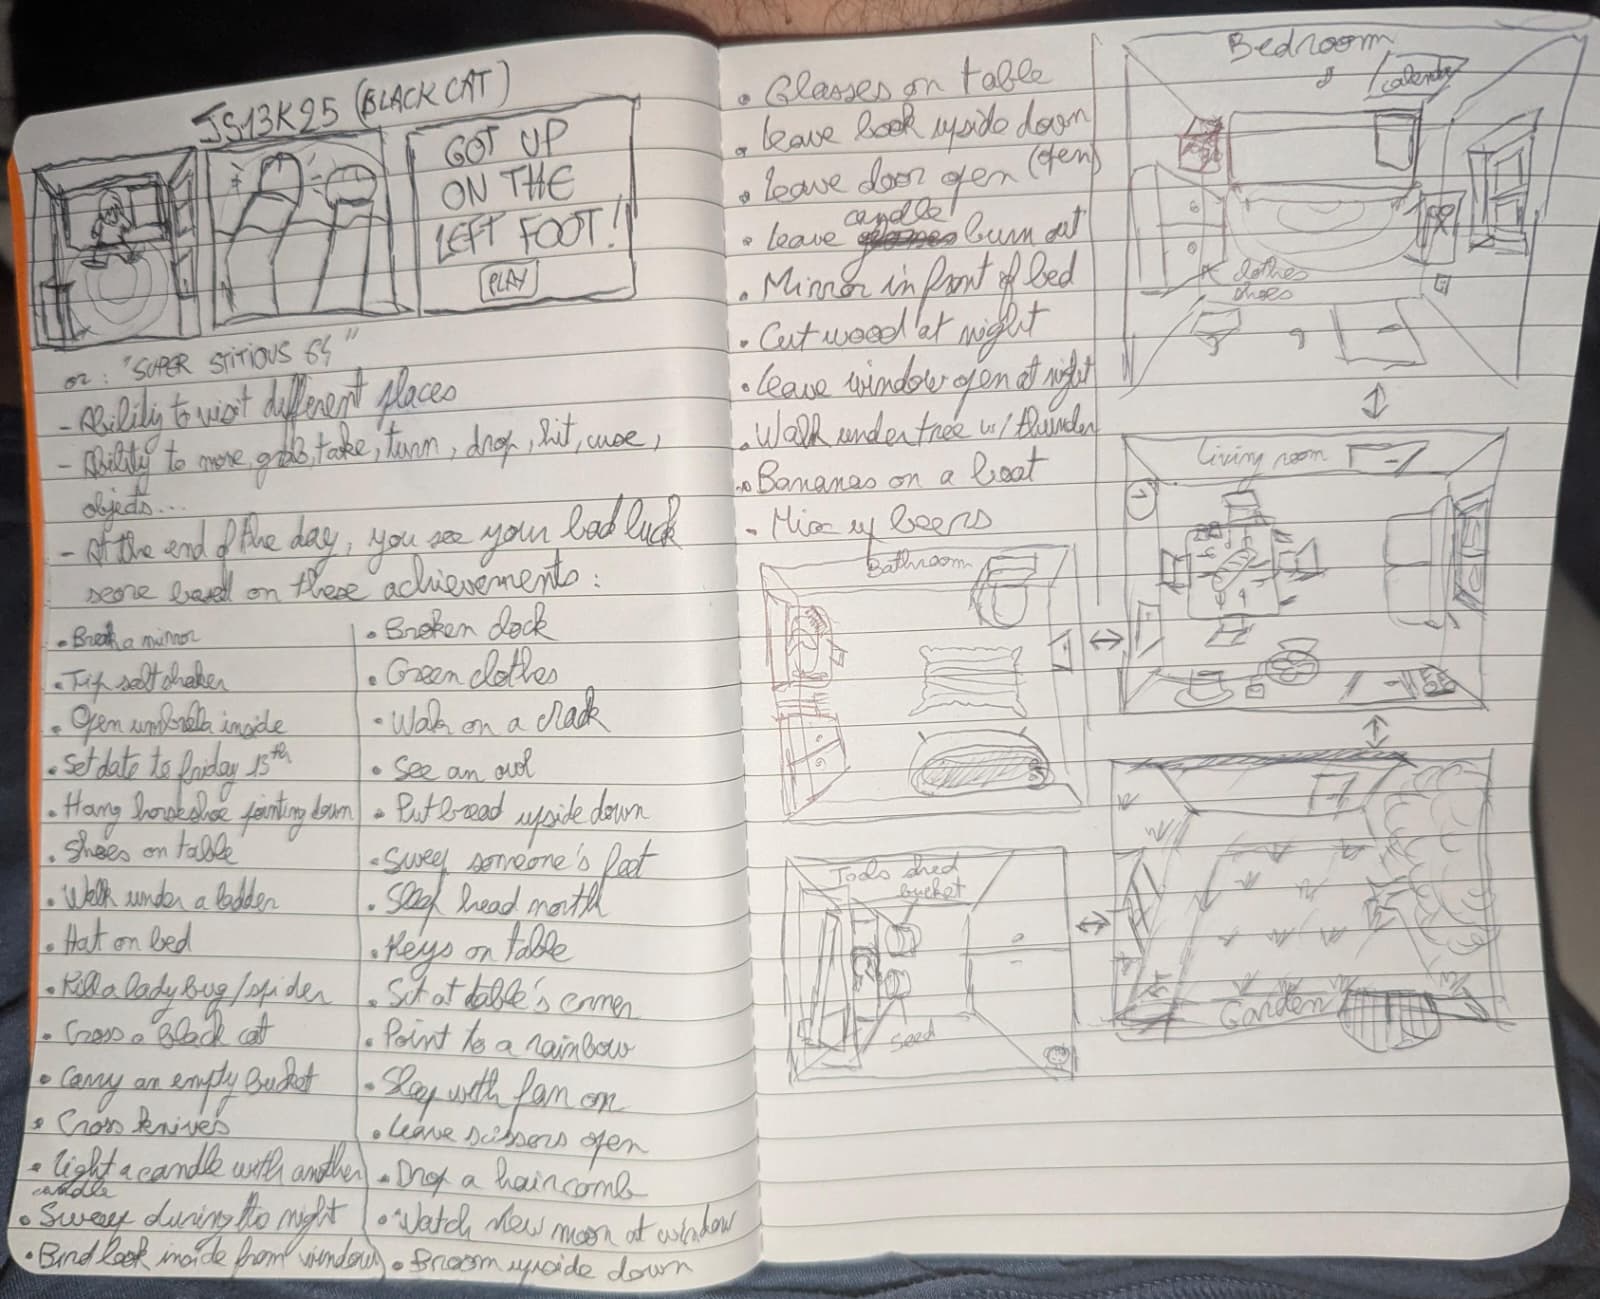 JS13K25 (BLACK CAT)
GOT UP
ON THE
LEFT FOOT!
PLAY
or: "SUPER STITIOUS 64"
- Ability to visit different places
- Ability to move, grab, take, turn, drop, hit, use,
objects...
- At the end of the day, you see your bad luck
score based on these achievements:
• Break a mirror
• Tip salt shaker
• Open umbrella inside
• Set date to friday 13th
• Hang horseshoe pointing down
• Shoes on table
• Walk under a ladder
• Hat on bed
• Kill a ladybug/spider
• Cross a black cat
• Carry an empty bucket
• Cross knives
• Light a candle with another
candle
• Sweep during the night
• Bird look inside from window
• Broken clock
• Green clothes
• Walk on a crack
• See an owl
• Put bread upside down
• Sweep someone's feet
• Sleep head north
• Keys on table
• Sit at table's corner
• Point to a rainbow
• Sleep with fan on
• Leave scissors open
• Drop a haircomb
• Watch new moon at window
• Broom upside down
• Glasses on table
• Leave book upside down
• Leave door open (pen)
• Leave candle burn out
• Mirror in front of bed
• Cut wood at night
• Leave window open at night
• Walk under tree w/ thunder
• Bananas on a boat
- Mix up beers
Bedroom
calendar
clothes
shoes
Living room
Bathroom
Tools shed
bucket
seed
Garden